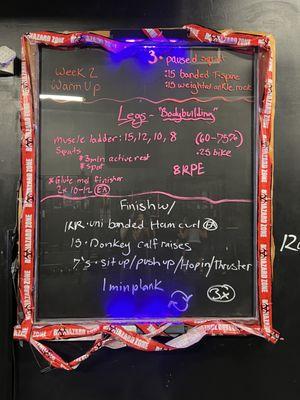 3 • paused squat
Week 2
Warm Up
:15 banded T-spine
:15 weighted ankle rock
Legs - "Bodybuilding"
Muscle ladder: 15, 12, 10, 8 (60-75%)
Squats
* 3min active rest
.25 bike
* spot
8 RPE
* Glute med finisher
2x 10-12 (EA)
Finish w/
uni banded Ham curl (EA)
15 • Donkey calf raises
7's • sit up/push up/Hop in/Thruster
1 min plank
3x
HAZARD ZONE